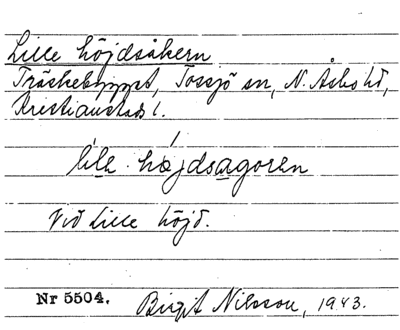 Lille höjdsåkern
Träskebygget, Tossjö sn, N. Åsbo hd,
Kristianstads l.
lile höjdsagoren
Vid Lille höjd.
Nr 5504. Birgit Nilsson, 1943.